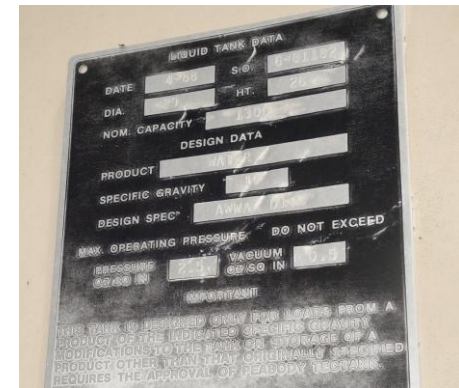 LIQUID TANK DATA
DATE 4-88 S.O.
DIA. HT.
NOM. CAPACITY
DESIGN DATA
PRODUCT WATER
SPECIFIC GRAVITY
DESIGN SPEC AWWA
MAX. OPERATING PRESSURE DO NOT EXCEED
PRESSURE VACUUM
OZ/SQ IN OZ/SQ IN
IMPORTANT
THIS TANK IS DESIGNED ONLY FOR LOADS FROM A
PRODUCT OF THE INDICATED SPECIFIC GRAVITY
MODIFICATIONS TO THE TANK OR STORAGE OF A
PRODUCT OTHER THAN THAT ORIGINALLY SPECIFIED
REQUIRES THE APPROVAL OF PEABODY TECTANK.